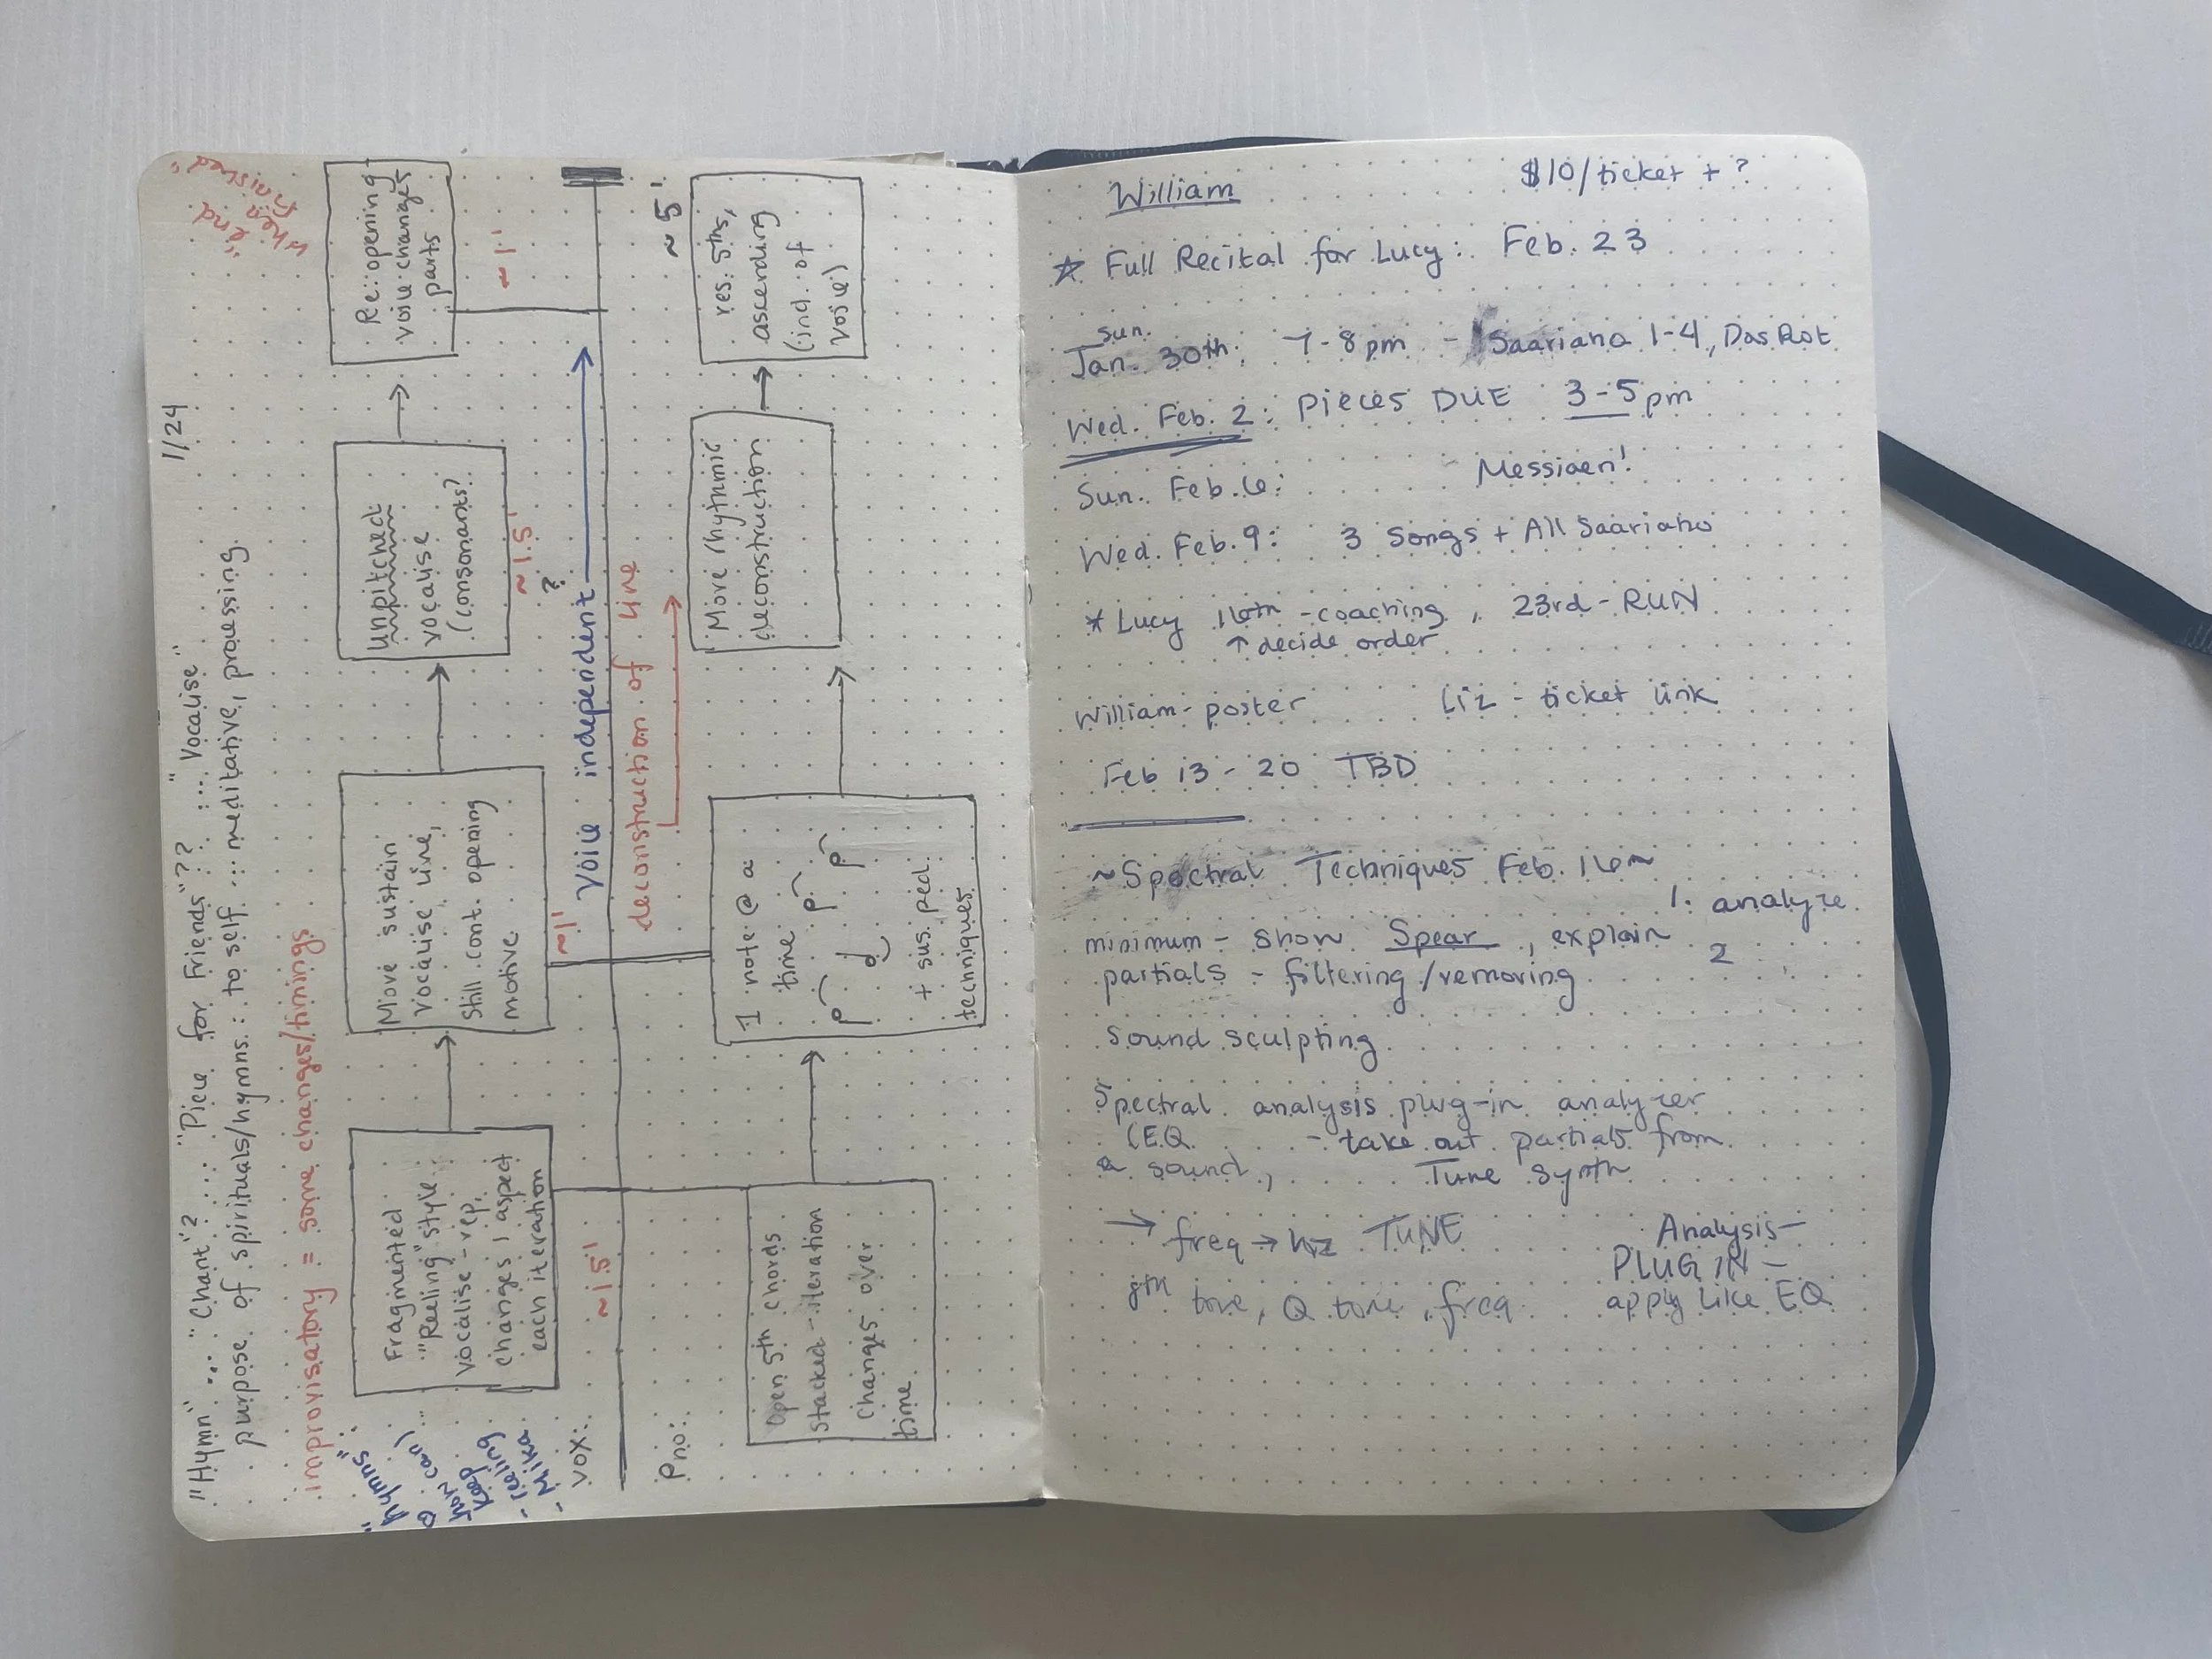 1/24
"Hymn" ... "Chant"? ... "Piece for Friends"?? ... "Vocalise"
purpose of spirituals/hymns: to self ... meditative, processing
improvisatory = some changes/timings
"end
when
finished"
"hymns":
how can I
keep
- reeling
- Mika
Vox:
Fragmented
"Reeling" style
vocalise - rep,
changes 1 aspect
each iteration
~1.5'
More sustain
vocalise line,
still cont. opening
motive
~1'
unpitched
vocalise
(consonants?
~1.5'
?
Re: opening
voice changes
parts
~1'
voice independent
deconstruction of line
Pno:
~5'
Open 5th chords
stacked - iteration
changes over
time
1 note @ a
time
+ sus. ped.
techniques
More rhythmic
deconstruction
res: 5ths,
ascending
(ind. of
voice)
William
$10/ticket + ?
Full Recital for Lucy: Feb. 23
Sun.
Jan. 30th: 7-8pm - Saariaho 1-4, Das Rot
Wed. Feb. 2: Pieces DUE 3-5pm
Sun. Feb. 6: Messiaen!
Wed. Feb. 9: 3 Songs + All Saariaho
* Lucy 16th - coaching, 23rd - RUN
↑ decide order
William - poster Liz - ticket link
Feb 13 - 20 TBD
~Spectral Techniques Feb. 16~
1. analyze
minimum - show Spear, explain
2
partials - filtering/removing
Sound sculpting
Spectral analysis plug-in analyzer
(EQ - take out partials from
a sound, Tune Synth
→ freq → hz TUNE
Analysis -
PLUG IN -
8th tone, Q tone, freq
apply like EQ